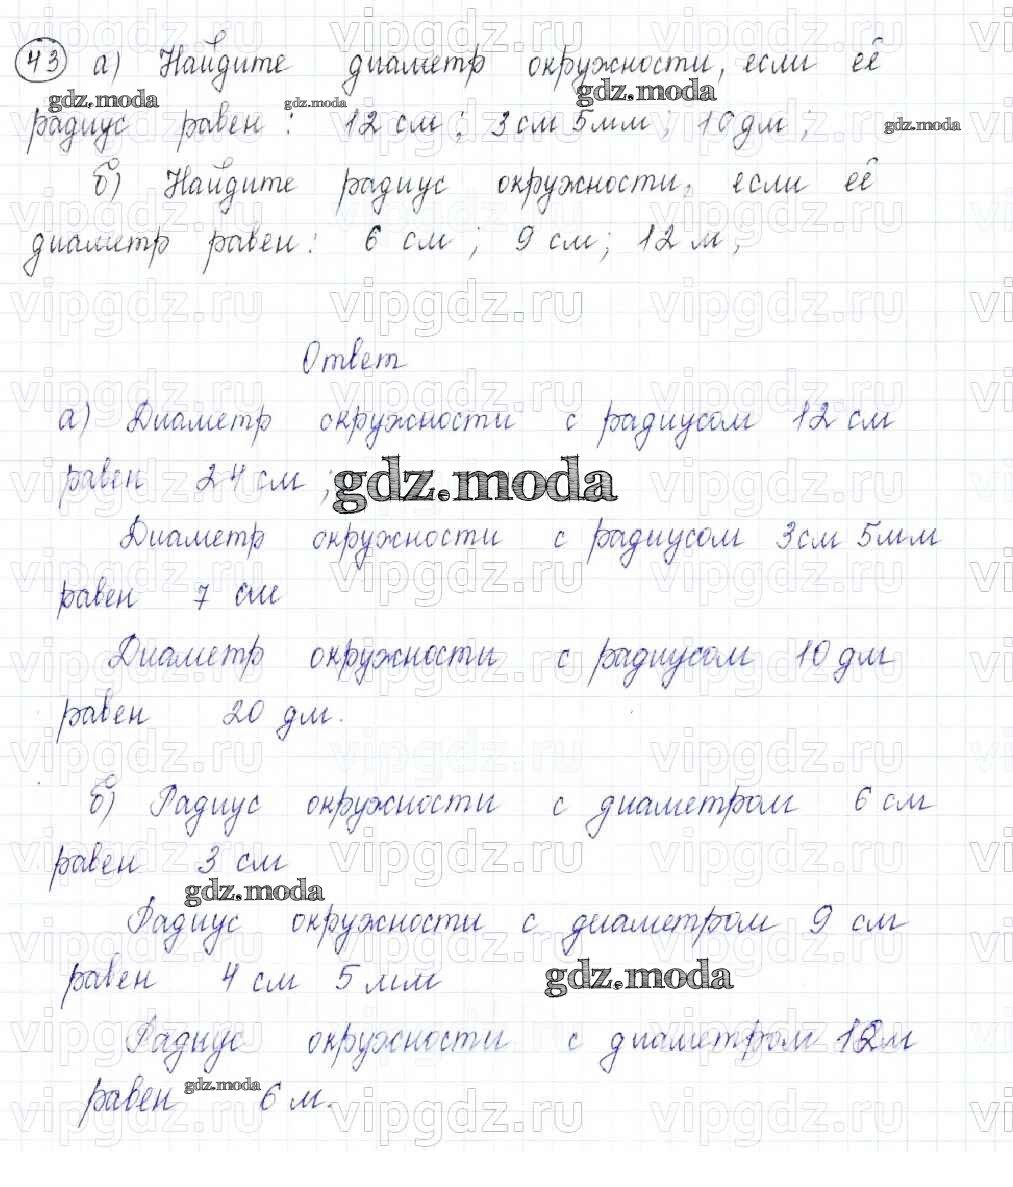 43 а) Найдите диаметр окружности, если её
радиус равен : 12 см ; 3 см 5 мм ; 10 дм ;
б) Найдите радиус окружности, если её
диаметр равен : 6 см ; 9 см ; 12 м ;
Ответ
а) Диаметр окружности с радиусом 12 см
равен 24 см ;
Диаметр окружности с радиусом 3 см 5 мм
равен 7 см
Диаметр окружности с радиусом 10 дм
равен 20 дм.
б) Радиус окружности с диаметром 6 см
равен 3 см
Радиус окружности с диаметром 9 см
равен 4 см 5 мм
Радиус окружности с диаметром 12 м
равен 6 м.
gdz.moda
vipgdz.ru